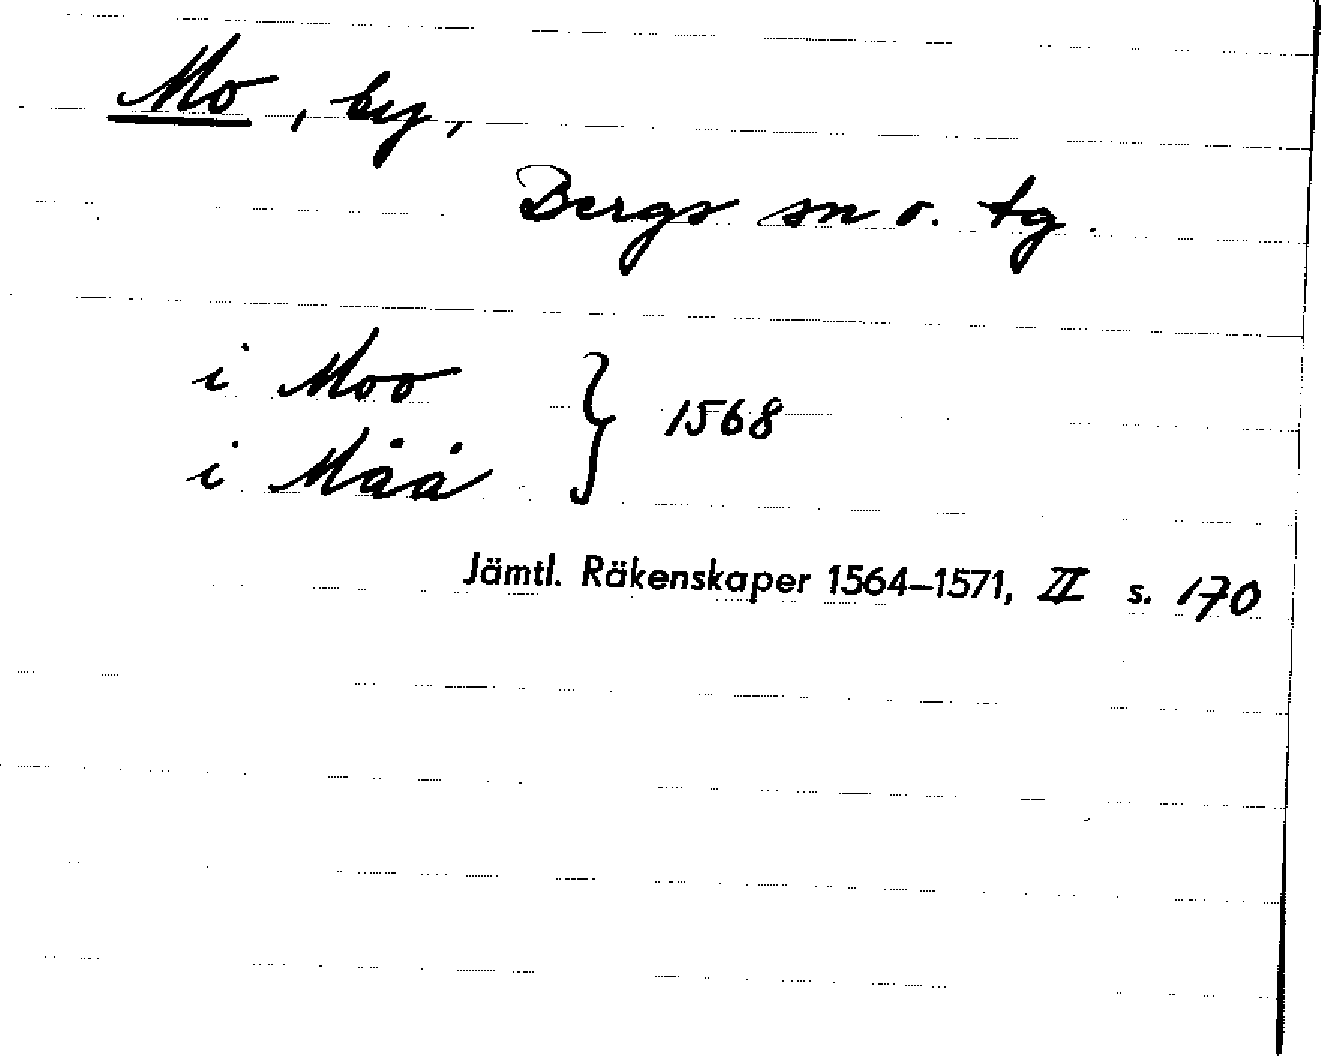 Mo, by,
Bergs sn o. tg.
i Moo
i Måå } 1568
Jämtl. Räkenskaper 1564–1571, II s. 170